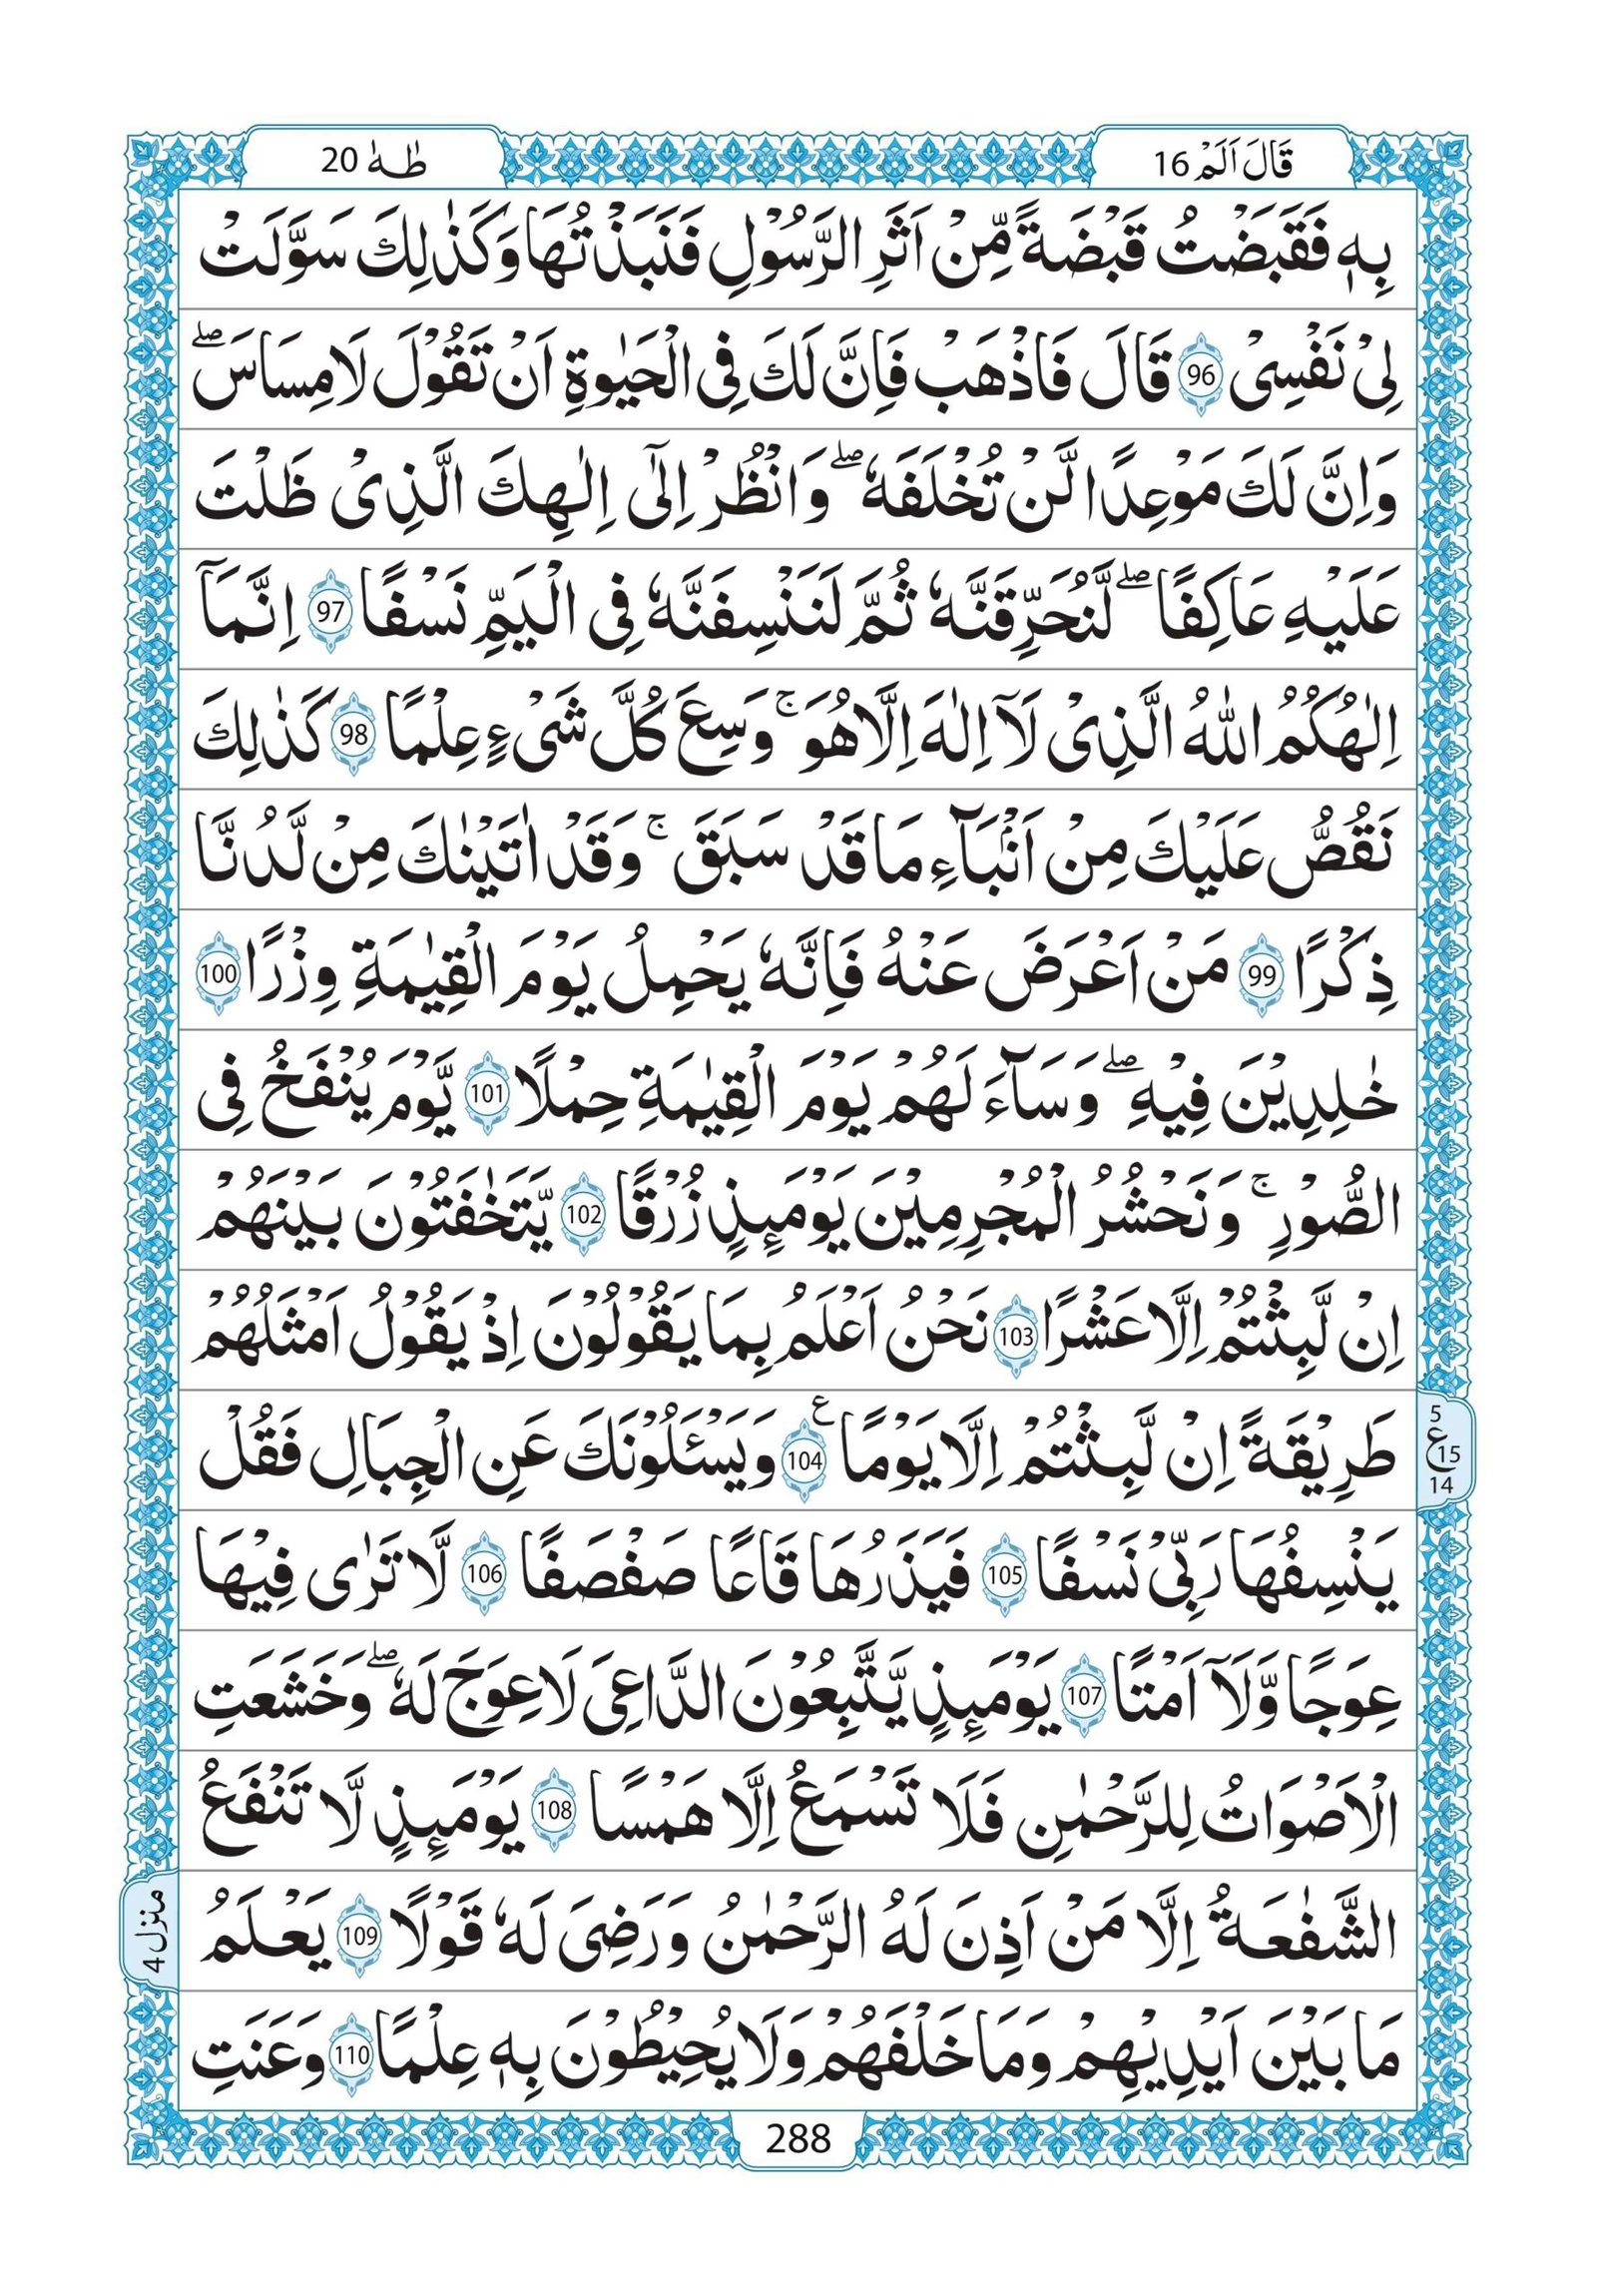 قَالَ اَلَمْ 16
طٰهٰ 20
بِهٖ فَقَبَضْتُ قَبْضَةً مِّنْ اَثَرِ الرَّسُوْلِ فَنَبَذْتُهَا وَكَذٰلِكَ سَوَّلَتْ
لِىْ نَفْسِىْ 96 قَالَ فَاذْهَبْ فَاِنَّ لَكَ فِى الْحَيٰوةِ اَنْ تَقُوْلَ لَا مِسَاسَ ۖ
وَاِنَّ لَكَ مَوْعِدًا لَّنْ تُخْلَفَهٗ ۖ وَانْظُرْ اِلٰٓى اِلٰهِكَ الَّذِىْ ظَلْتَ
عَلَيْهِ عَاكِفًا ۖ لَّنُحَرِّقَنَّهٗ ثُمَّ لَنَنْسِفَنَّهٗ فِى الْيَمِّ نَسْفًا 97 اِنَّمَآ
اِلٰهُكُمُ اللّٰهُ الَّذِىْ لَآ اِلٰهَ اِلَّا هُوَ ۚ وَسِعَ كُلَّ شَىْءٍ عِلْمًا 98 كَذٰلِكَ
نَقُصُّ عَلَيْكَ مِنْ اَنْۢبَآءِ مَا قَدْ سَبَقَ ۚ وَقَدْ اٰتَيْنٰكَ مِنْ لَّدُنَّا
ذِكْرًا 99 مَنْ اَعْرَضَ عَنْهُ فَاِنَّهٗ يَحْمِلُ يَوْمَ الْقِيٰمَةِ وِزْرًا 100
خٰلِدِيْنَ فِيْهِ ۖ وَسَآءَ لَهُمْ يَوْمَ الْقِيٰمَةِ حِمْلًا 101 يَّوْمَ يُنْفَخُ فِى
الصُّوْرِ ۚ وَنَحْشُرُ الْمُجْرِمِيْنَ يَوْمَئِذٍ زُرْقًا 102 يَّتَخٰفَتُوْنَ بَيْنَهُمْ
اِنْ لَّبِثْتُمْ اِلَّا عَشْرًا 103 نَحْنُ اَعْلَمُ بِمَا يَقُوْلُوْنَ اِذْ يَقُوْلُ اَمْثَلُهُمْ
طَرِيْقَةً اِنْ لَّبِثْتُمْ اِلَّا يَوْمًا 104 ع وَيَسْـَٔلُوْنَكَ عَنِ الْجِبَالِ فَقُلْ
5
ع 15
14
يَنْسِفُهَا رَبِّىْ نَسْفًا 105 فَيَذَرُهَا قَاعًا صَفْصَفًا 106 لَّا تَرٰى فِيْهَا
عِوَجًا وَّلَآ اَمْتًا 107 يَوْمَئِذٍ يَّتَّبِعُوْنَ الدَّاعِىَ لَا عِوَجَ لَهٗ ۖ وَخَشَعَتِ
الْاَصْوَاتُ لِلرَّحْمٰنِ فَلَا تَسْمَعُ اِلَّا هَمْسًا 108 يَوْمَئِذٍ لَّا تَنْفَعُ
الشَّفٰعَةُ اِلَّا مَنْ اَذِنَ لَهُ الرَّحْمٰنُ وَرَضِىَ لَهٗ قَوْلًا 109 يَعْلَمُ
منزل 4
مَا بَيْنَ اَيْدِيْهِمْ وَمَا خَلْفَهُمْ وَلَا يُحِيْطُوْنَ بِهٖ عِلْمًا 110 وَعَنَتِ
288